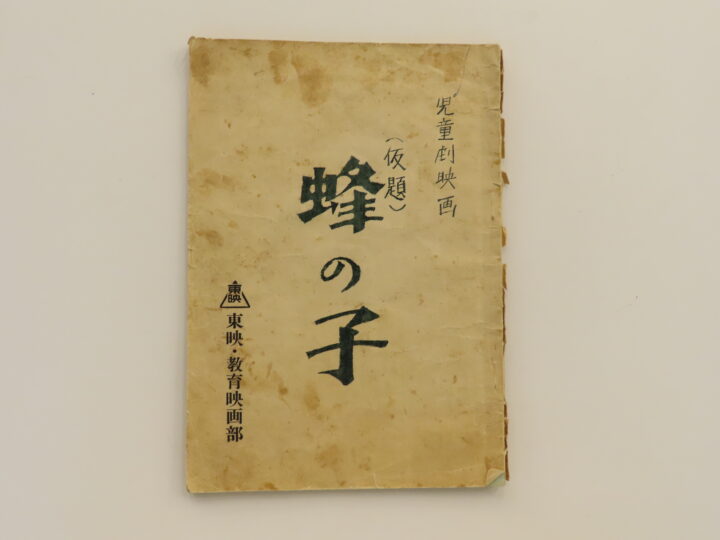 児童劇映画
（仮題）
蜂の子
東映
東映・教育映画部